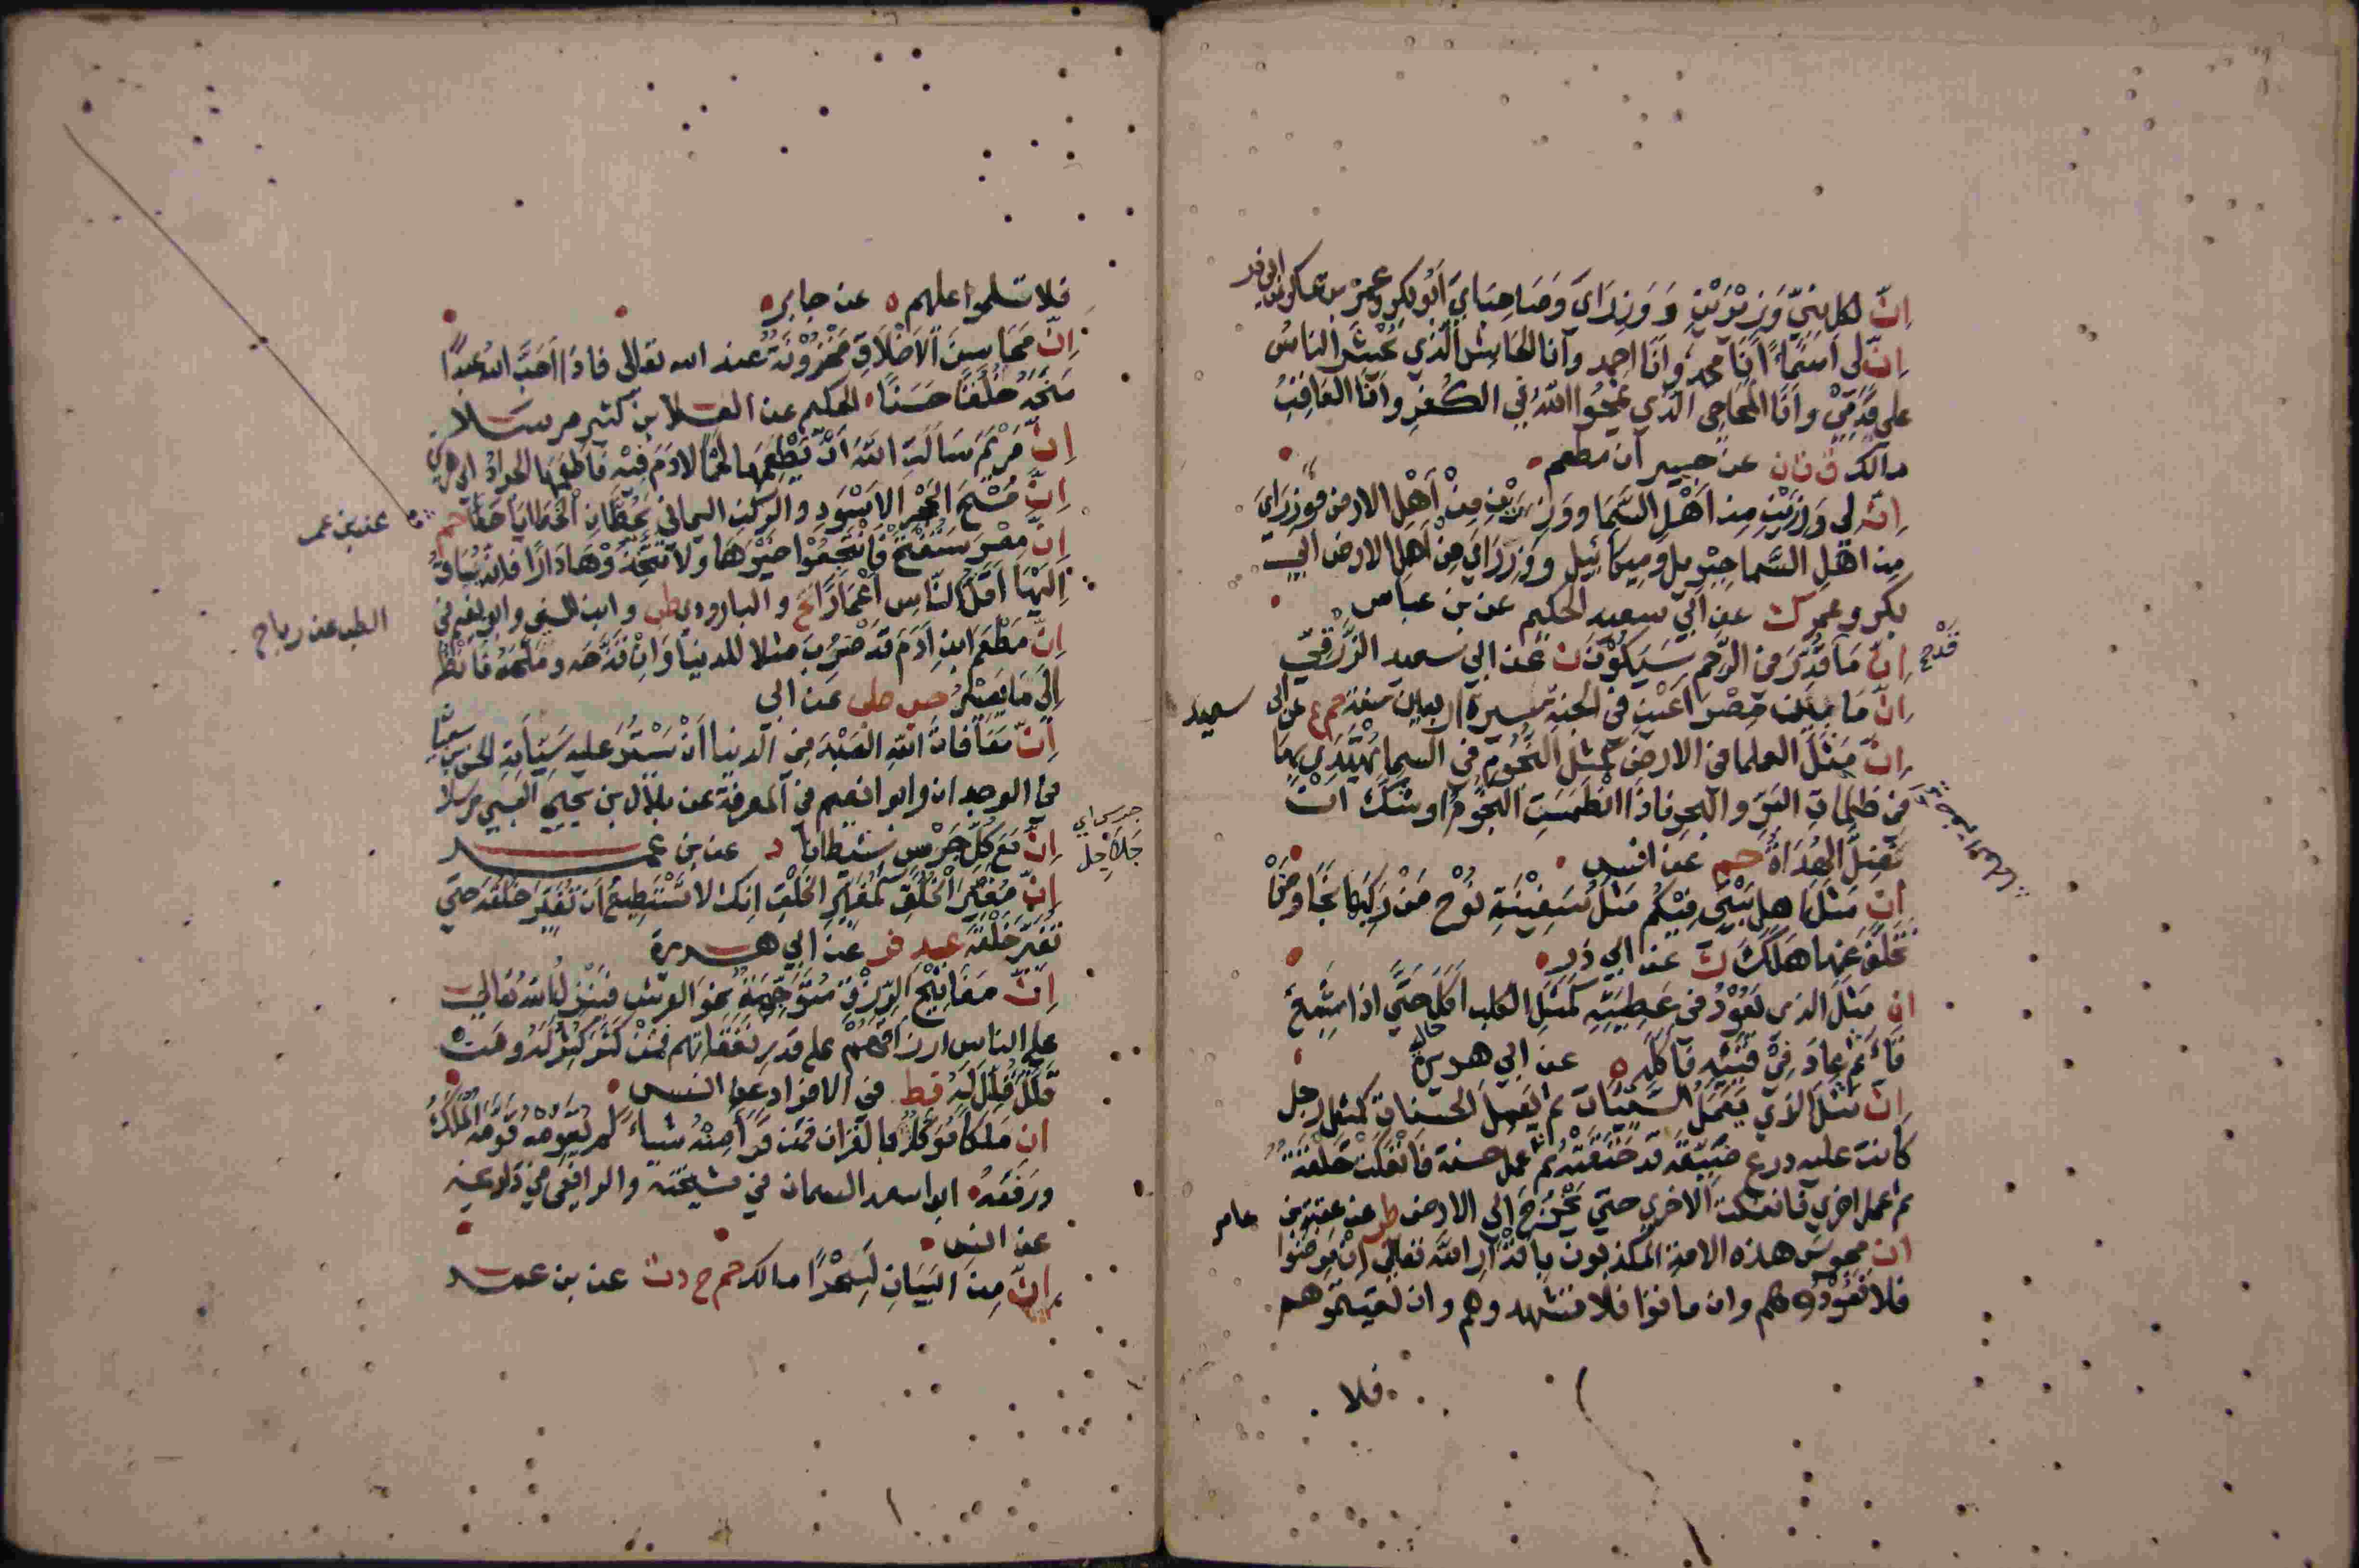 اِنّ لكل نبيّ وَزِيْرَيْنِ وَ وَزِيرَايَ وَصَاحِبَايَ اَبُو بكر وعمر بن عساكر عن ابى ذر
اِنّ لى اَسْمَاءً اَنَا محمد وَاَنَا احمد وانا الحَاشِرُ الّذي يُحْشَرُ الناسُ
على قَدَمِيْ وانَا المَاحِي الّذي يَمْحُوا اللّهُ بي الكُفرَ وانَا العَاقِبُ
مالك ق ت ن عن جبير ابن مطعم
اِنّ لي وَزِيْرَيْنِ مِن اَهْلِ السَّمَا ووَزِيرَيْنِ مِنْ اَهْلِ الارض فَوَزِيرَايَ
مِن اهْلِ السَّما جِبْرِيل ومِيكائِيل ووَزِيرَايَ مِنْ اَهل الارض ابي
بكر وعمر ك عن ابي سعيد الحكيم عن بن عباس
اِنّ مَا قُدِّرَ في الرَّحِم سَيَكُوْنُ ن عن ابي سعيد الزُرَقِيّ
قَدْ صح
اِنّ مَا بَيْنَ مِصْرَاعَيْنِ في الجنةِ مسيرة اربعين سنة حم ع عن ابى
سعيد
اِنّ مَثَلَ العلما في الارض كمثلِ النُّجُومِ في السما يُهْتَدَي بِهَا
في ظلماتِ البَرِّ والبحر فاذا انْطَمَسَتِ النُّجُومُ اوشَكَ انْ
تَضِلَّ الهُدَاةُ حم عن انس
اِنّ مَثَلَ اهلِ بَيْتي فِيْكُم مَثَلُ سَفِيْنَةِ نُوْحٍ مَنْ رَكِبَهَا نَجَا ومَنْ
تَخَلَّفَ عَنها هَلَكَ ك عن ابي ذر
ان مَثَلَ الذى يَعُوْدُ في عَطِيَّتِهِ كَمَثَلِ الكلبِ اَكَلَ حَتَّي اذا شَبِعَ
قَاءَ ثُمّ عادَ فِيْ قَيْئِهِ فَاَكَلَهُ ه عن ابي هريرة
اِنّ مَثَلَ الّذي يَعْمَلُ السَّيِّئَاتِ ثم يَعْمل الحسنات كمثل رجل
كانت عليه درع ضَيِّقَةٌ قَد خَنَقَتْهُ ثُمّ عمل حسنة فَانْفَكَّتْ حَلْقَةٌ
ثم عمل اخرى فانفكت الاخرى حتى يَخْرُجَ الي الارض طب عن عقبة بن
عامر
ان مجوس هذه الامة المكذبون بِاَقْدَارِ اللّه تعالى اِنْ مَرِضُوا
فلا تَعُوْدُوهُم وان ماتوا فلا تشهدوهم وان لقيتموهم
فلا
فلا تسلموا عليهم ه عن جابر
اِنّ مَحَاسِنَ الاَخْلاَقِ مَخْزُوْنَةٌ عند الله تعالى فاذَا اَحَبَّ اللّهُ عَبْدًا
مَنَحَهُ خُلُقًا حَسَنًا الحكيم عن العلا بن كثير مرسلا
اِنّ مَرْيَمَ سَاَلَتِ اللّهَ اَنْ يُطْعِمَهَا لَحْمًا لا دَمَ فِيْهِ فَاَطْعَمَهَا الجرادَ
اِنّ مَسْحَ الحَجَرِ الاسْوَدِ والرُّكنِ اليماني يَحُطَّانِ الْخَطَايَا حَطّاً حم
عن بن عمر
اِنّ مِصْرَ سَتُفْتَحُ فَانْتَجِعُوْا خَيْرَهَا ولا تَتَّخِذُوْهَا دَارًا فانه يُسَاقُ
اِلَيْهَا اَقَلُّ النّاسِ اَعْمَارًا تخ والباوردى طب وابن السنى وابو نعيم في
الطب عن رباح
اِنّ مَطْعَمَ ابنِ اَدَمَ قَدْ ضُرِبَ مثلا للدنيا وَاِنْ قَزَّحَه ومَلَّحَهُ فَانْظُر
اِلَي مَا يَصِيْرُ حب طب عن ابي
اِنّ مُعَافَاةَ اللّهِ العَبْدَ فِي الدنيا اَنْ يَسْتُرَ عليه سَيِّاَتِهِ الحسن بن سفيان
في الوحدان وابو نعيم في المعرفة عن بلال بن يحيى العبسي مرسلا
اِنّ مَعَ كُلِّ جَرَسٍ شَيْطَانًا د عن بن عمر
جَلاَجِل
اِنّ مُغَيِّرَ الْخُلُقِ كَمُغَيِّرِ الخَلْقِ اِنك لا تَسْتَطِيعُ اَنْ تُغَيِّرَ خُلُقَه حَتّي
تُغَيِّرَ خَلْقَهُ عد فر عن ابي هريرة
اِنّ مَفَاتِيْحَ الرِّزْقِ مُتَوَجِّهَةٌ نحوَ العرْشِ فيُنْزِلُ اللّه تعاليَ
على الناسِ ارزاقَهُمْ على قدرِ نَفَقَاتِهم فمَنْ كَثَّرَ كُثِّرَ لَهُ ومَنْ
قَلَّلَ قُلِّلَ لَهُ قط في الافراد عن انس
ان مَلَكًا مُوَكَّلٌ بالقرَان فَمَن قَرَاَ مِنْهُ شيئاً لم يُقَوِّمْهُ قَوَّمَهُ المَلَكُ
ورَفَعَهُ ابو اسعد السمان في مشيخته والرافعى في تاريخه
عن انس
اِنّ مِنَ البَيَانِ لَسِحْرًا مالك حم خ د ت عن بن عمر